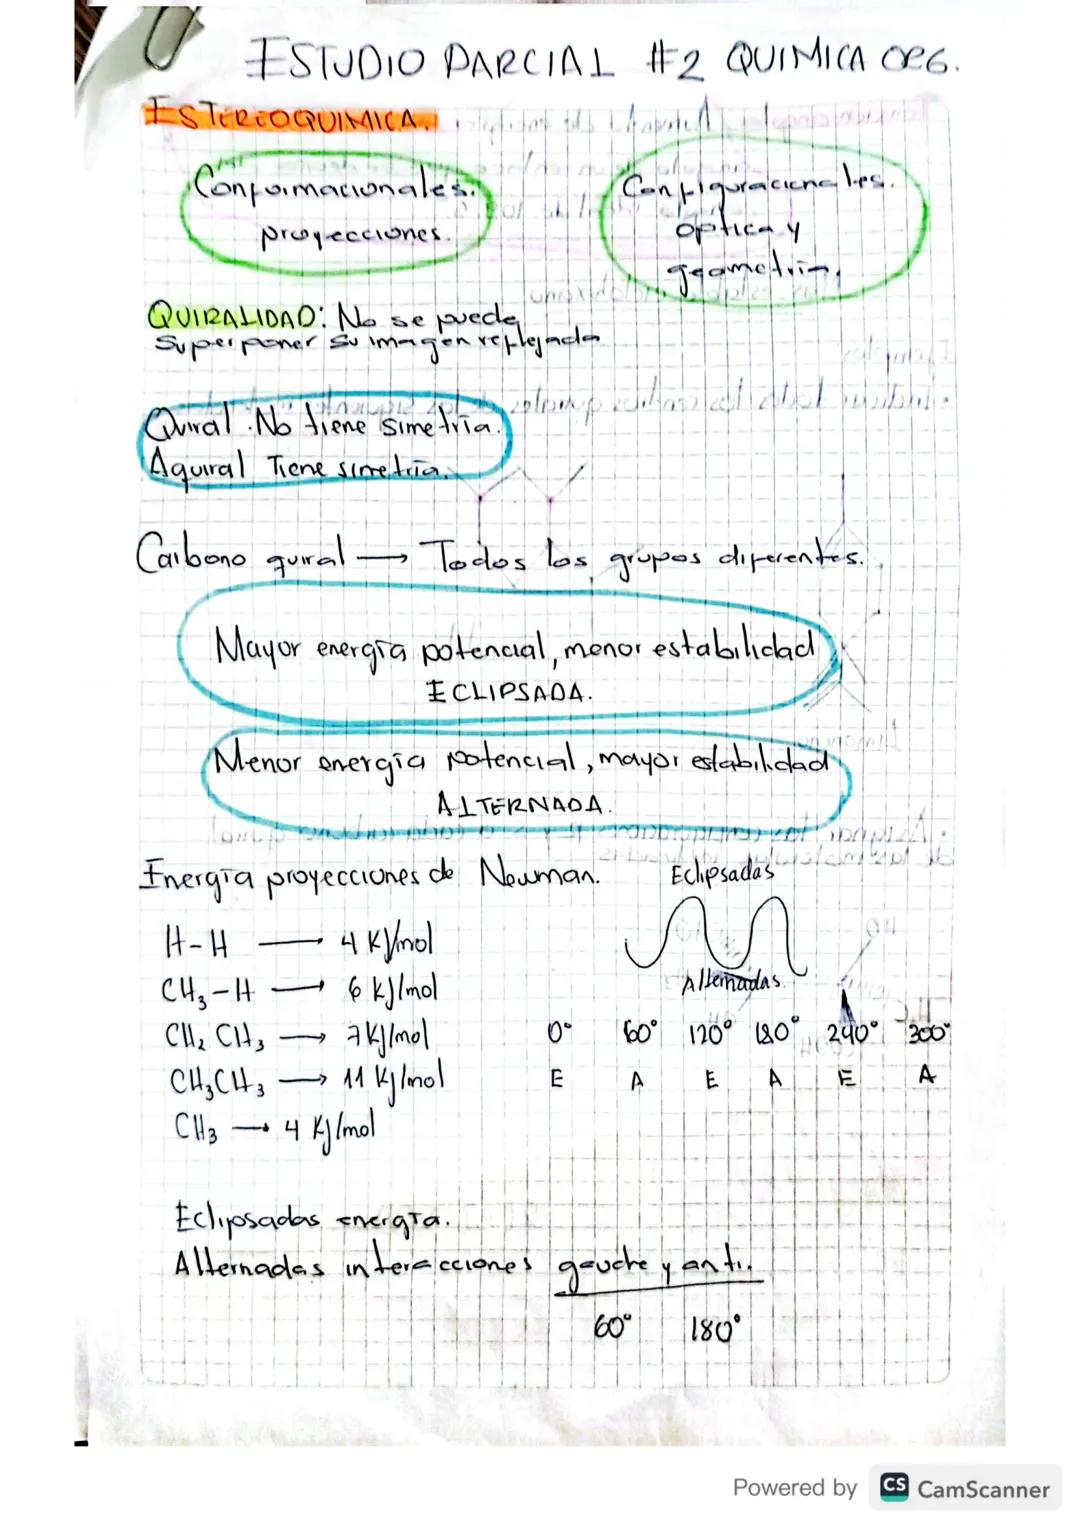 ESTUDIO PARCIAL #2 QUIMICA ORG.
ESTEREOQUIMICA.
Conformacionales.
proyecciones.
Configuracionales.
optica y
geometria.
QUIRALIDAD: No se puede
superponer su imagen reflejada
Quiral. No tiene simetría.
Aquiral Tiene simetría.
Carbono quiral → Todos los grupos diferentes.
Mayor energía potencial, menor estabilidad
ECLIPSADA.
Menor energía potencial, mayor estabilidad
ALTERNADA.
Energía proyecciones de Newman.
Eclipsadas
Alternadas.
H-H — 4 KJ/mol
CH₃-H → 6 kJ/mol
CH₂ CH₃ → 7 kJ/mol
CH₃CH₃ → 11 kJ/mol
CH₃ → 4 KJ/mol
0° 60° 120° 180° 240° 300°
E A E A E A
Eclipsadas energía.
Alternadas interacciones gauche y anti.
60° 180°
Powered by CS CamScanner